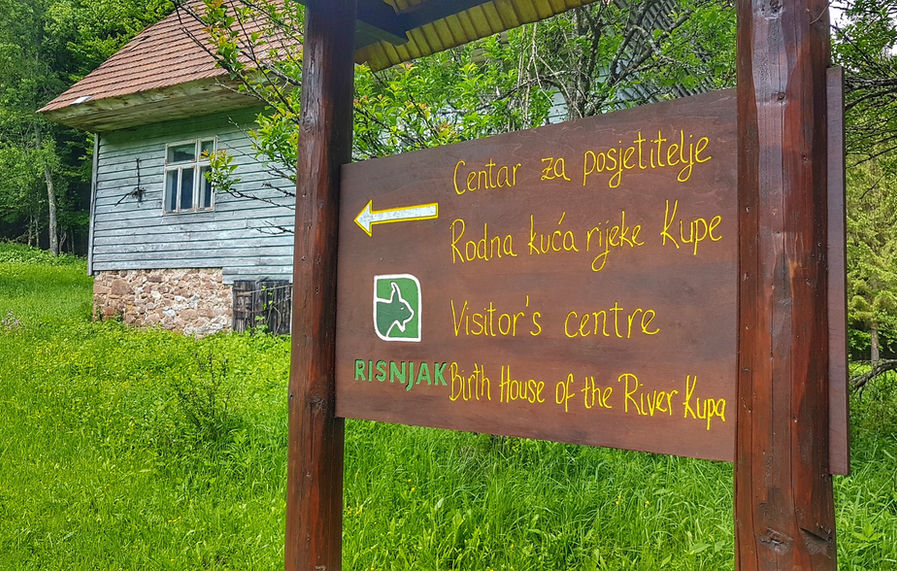 Centar za posjetitelje
Rodna kuća rijeke Kupe
Visitor's centre
RISNJAK
Birth House of the River Kupa